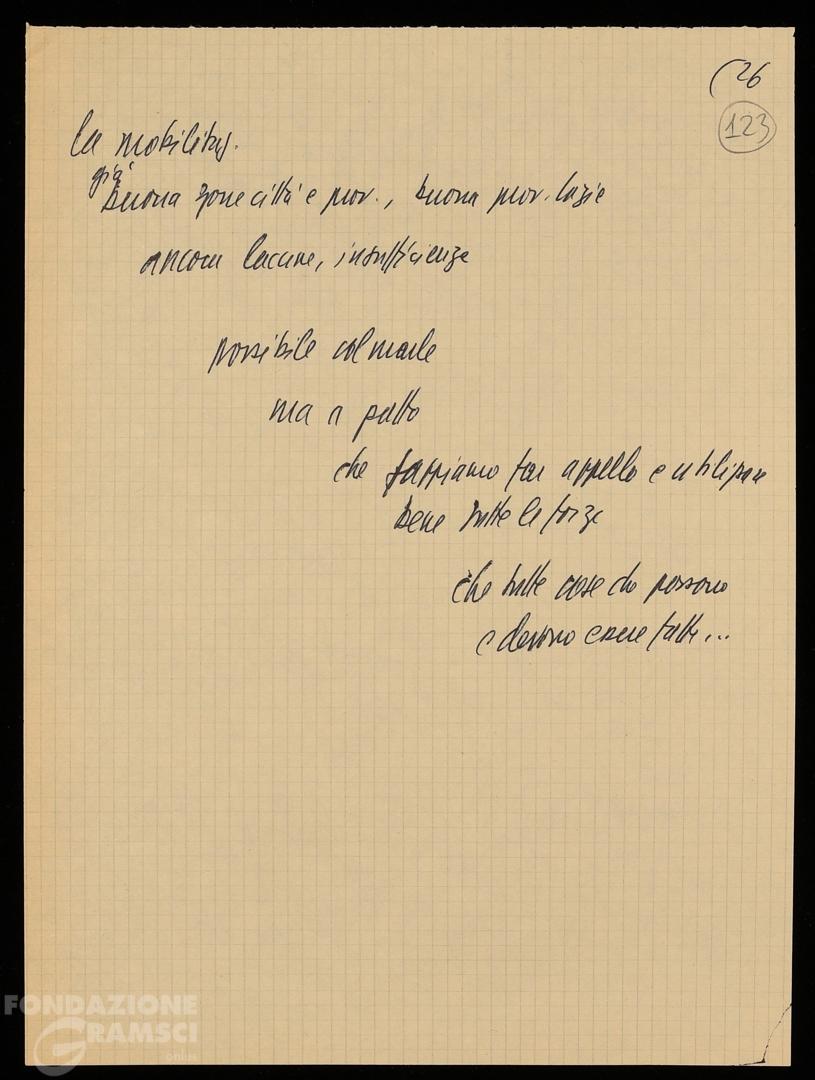 (26
123
la mobilitaz.
già
buona zone città e prov., buona prov. Lazio
ancora lacune, insufficienze
possibile colmarle
ma a patto
che sappiamo far appello e utilizzare
bene tutte le forze
che tutte cose che possono
e devono essere fatte...
FONDAZIONE
GRAMSCI
onlus